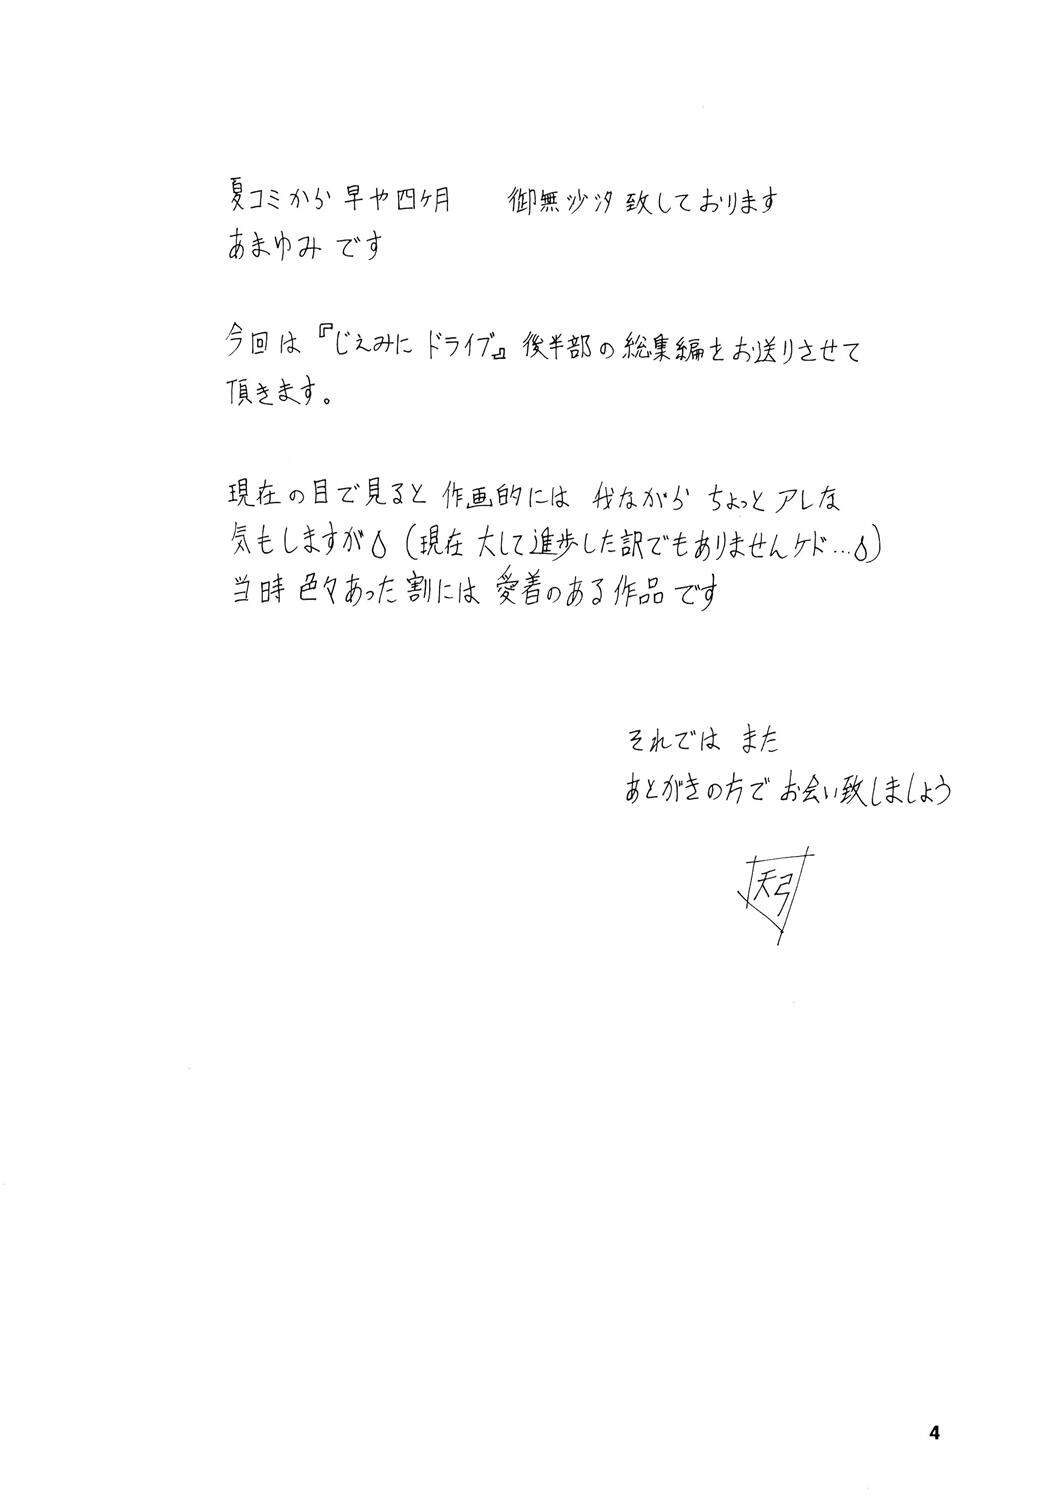 夏コミから 早や四ヶ月　御無沙汰致しております
あまゆみ です
今回は『じえみに ドライブ』後半部の総集編をお送りさせて
頂きます。
現在の目で見ると 作画的には 我ながら ちょっと アレな
気もしますが (現在 大して進歩した訳でもありませんケド…)
当時 色々あった割には 愛着のある作品です
それでは また
あとがきの方で お会い致しましょう
天弓
4